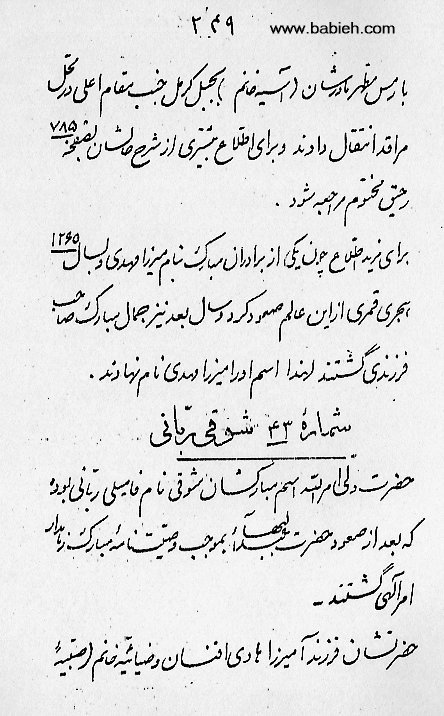 ۲۴۹
www.babieh.com
با رمس مطهر مادرشان (آسیه خانم) بجبل کرمل جنب مقام اعلی در محل
مراقد انتقال دادند و برای اطلاع بیشتری از شرح حالشان بصفحه ۷۸۵
رحیق مختوم مراجعه شود .
برای مزید اطلاع چون یکی از برادران مبارک بنام میرزا مهدی در سال ۱۲۶۵
هجری قمری از این عالم صعود کرد و سال بعد نیز جمال مبارک صاحب
فرزندی گشتند لهذا اسم او را میرزا مهدی نام نهادند .
شمارهٔ ۴۳ شوقی ربّانی
حضرت ولیّ امرالله اسم مبارکشان شوقی نام فامیلی ربّانی بوده
که بعد از صعود حضرت عبدالبهآء بموجب وصیّت نامهٔ مبارک زمامدار
امر الهی گشتند -
حضرتشان فرزند آمیرزا هادی افنان و ضیائیه خانم (صبیهٔ